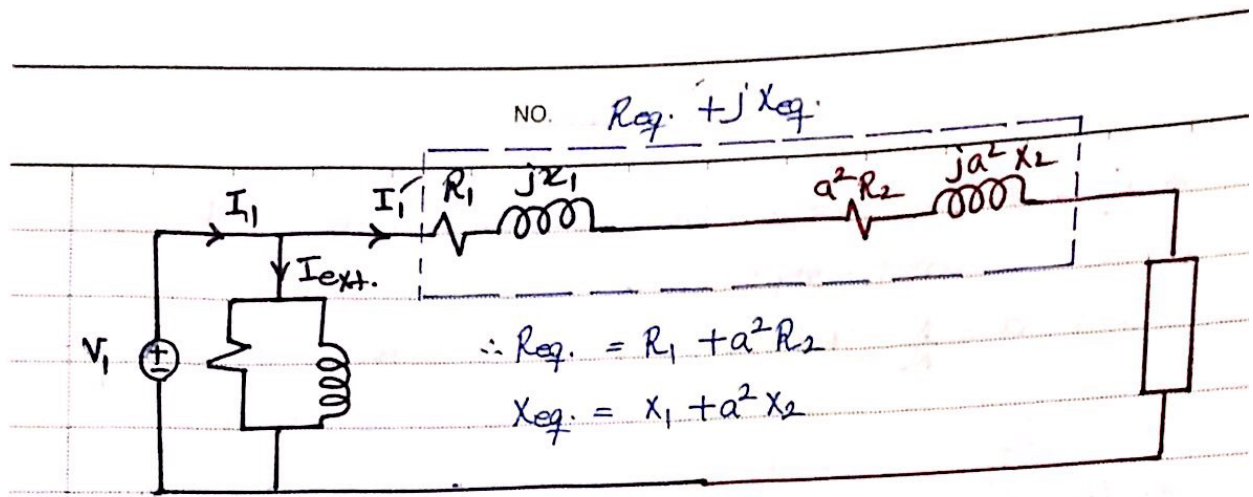 NO. Req. + jXeq.
I1 I1' R1 jx1 a²R2 ja²X2
Iext.
V1
∴ Req. = R1 + a²R2
Xeq. = X1 + a²X2